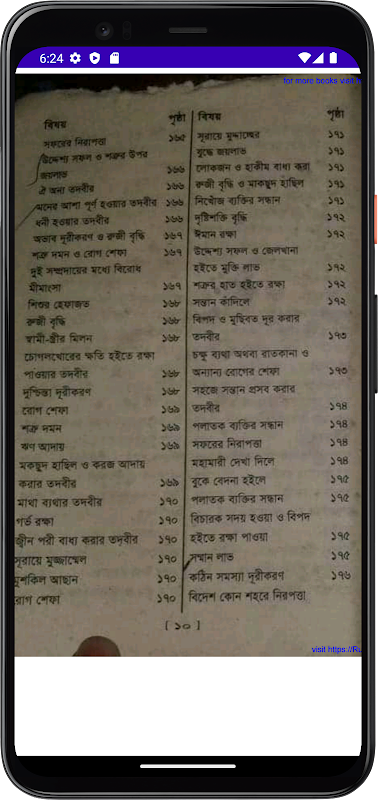 6:24
for more books visit
বিষয় পৃষ্ঠা
সফরের নিরাপত্তা ১৬৫
উদ্দেশ্য সফল ও শত্রুর উপর
জয়লাভ ১৬৬
ঐ অন্য তদবীর ১৬৬
মনের আশা পূর্ণ হওয়ার তদবীর ১৬৬
ধনী হওয়ার তদবীর ১৬৬
অভাব দূরীকরণ ও রুজী বৃদ্ধি ১৬৭
শত্রু দমন ও রোগ শেফা ১৬৭
দুই সম্প্রদায়ের মধ্যে বিরোধ
মীমাংসা ১৬৭
শিশুর হেফাজত ১৬৮
রুজী বৃদ্ধি ১৬৮
স্বামী-স্ত্রীর মিলন ১৬৮
চোগলখোরের ক্ষতি হইতে রক্ষা
পাওয়ার তদবীর ১৬৮
দুশ্চিন্তা দূরীকরণ ১৬৮
রোগ শেফা ১৬৯
শত্রু দমন ১৬৯
ঋণ আদায় ১৬৯
মকছুদ হাছিল ও করজ আদায়
করার তদবীর ১৬৯
মাথা ব্যথার তদবীর ১৭০
গর্ভ রক্ষা ১৭০
জ্বীন পরী বাধ্য করার তদবীর ১৭০
সূরায়ে মুজ্জাম্মেল ১৭০
মুশকিল আছান ১৭০
রোগ শেফা ১৭০
বিষয় পৃষ্ঠা
সূরায়ে মুদ্দাচ্ছের ১৭১
যুদ্ধে জয়লাভ ১৭১
লোকজন ও হাকীম বাধ্য করা ১৭১
রুজী বৃদ্ধি ও মাকছুদ হাছিল ১৭১
নিখোঁজ ব্যক্তির সন্ধান ১৭১
দৃষ্টিশক্তি বৃদ্ধি ১৭২
ঈমান রক্ষা ১৭২
উদ্দেশ্য সফল ও জেলখানা
হইতে মুক্তি লাভ ১৭২
শত্রুর হাত হইতে রক্ষা ১৭২
সন্তান কাঁদিলে ১৭২
বিপদ ও মুছিবত দূর করার
তদবীর ১৭৩
চক্ষু ব্যথা অথবা রাতকানা ও
অন্যান্য রোগের শেফা ১৭৩
সহজে সন্তান প্রসব করার
তদবীর ১৭৪
পলাতক ব্যক্তির সন্ধান ১৭৪
সফরের নিরাপত্তা ১৭৪
মহামারী দেখা দিলে ১৭৪
বুকে বেদনা হইলে ১৭৫
পলাতক ব্যক্তির সন্ধান ১৭৫
বিচারক সদয় হওয়া ও বিপদ
হইতে রক্ষা পাওয়া ১৭৫
সম্মান লাভ ১৭৫
কঠিন সমস্যা দূরীকরণ ১৭৬
বিদেশ কোন শহরে নিরপত্তা
[ ১০ ]
visit https://Ru